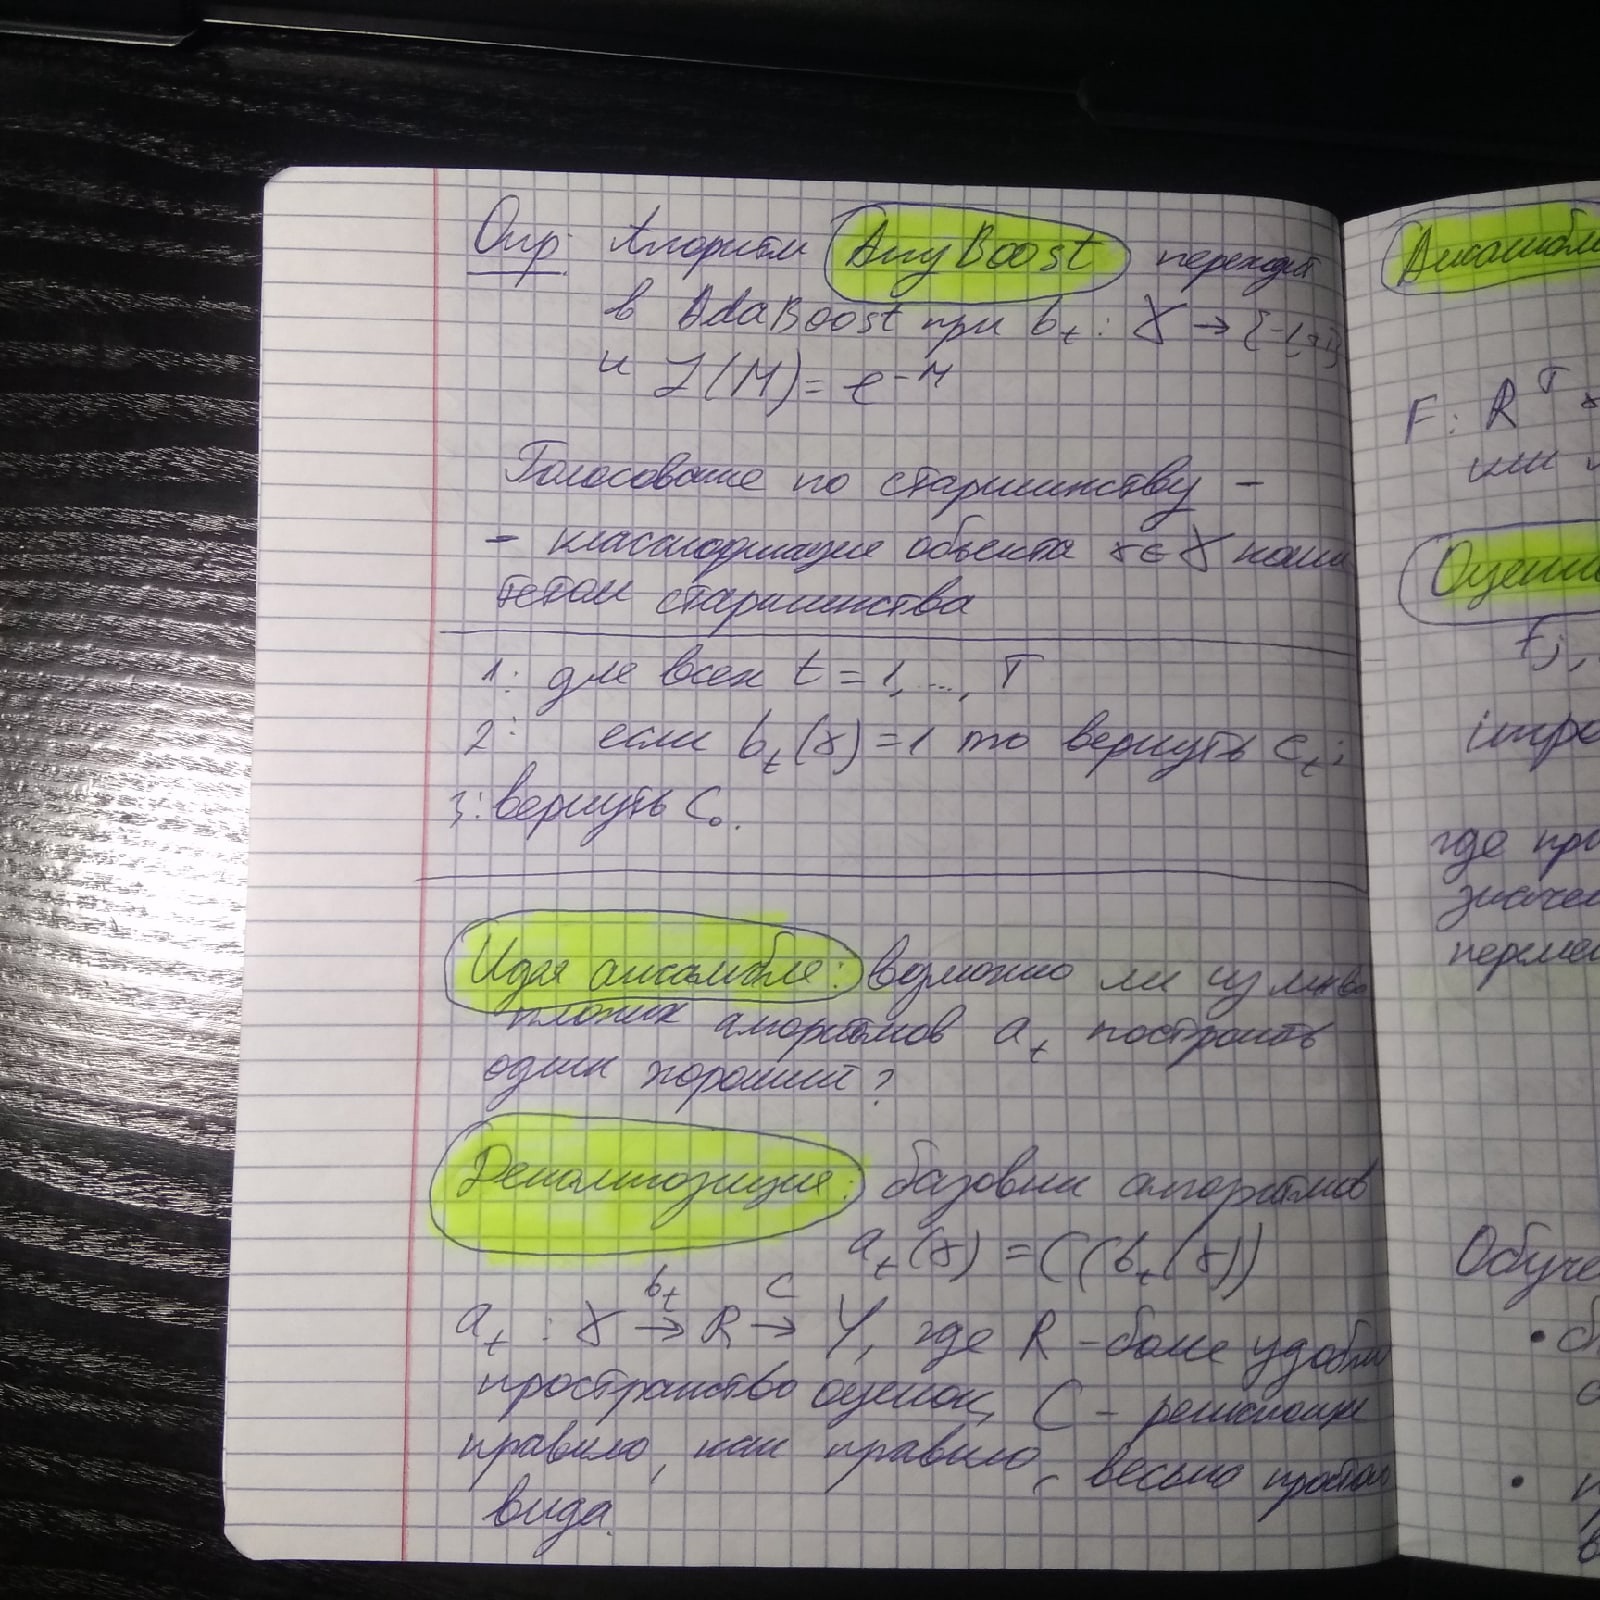 Опр: Алгоритм AnyBoost переходит
в AdaBoost при b_t : X → {-1,+1}
и L(M) = e^{-M}
Голосование по старшинству -
- классификация объекта x ∈ X коми
тетом старшинства
1: для всех t = 1, ..., T
2: если b_t(x) = 1 то вернуть c_t;
3: вернуть C_0.
Идея ансамбля: возможно ли из
плохих алгоритмов a_t построить
один хороший?
Декомпозиция: базовых алгоритмов
a_t(x) = C(b_t(x))
b_t C
a_t : X → R → Y, где R - более удобное
пространство оценок, C - решающее
правило, как правило, весьма простого
вида.
F: R^T
или
Оценки
где
Обуче